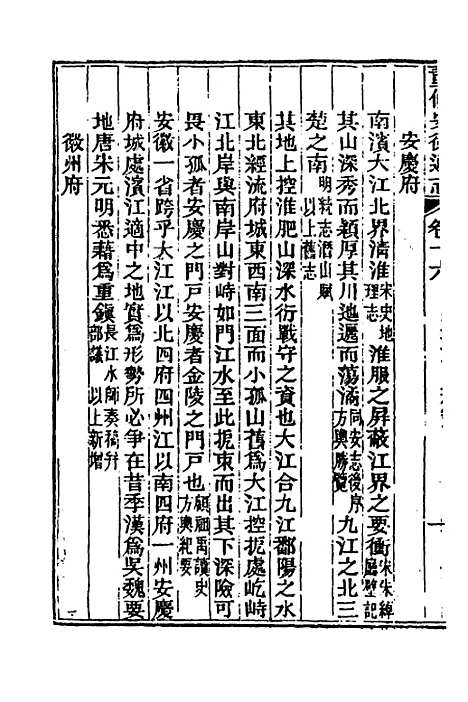 重修安徽通志 卷十六
安慶府
南濱大江北界清淮宋史地理志淮服之屏蔽江界之要衝宋朱綽廳壁記
其山深秀而穎厚其川迤邐而蕩潏同安志後序方輿勝覽九江之北三
楚之南明統志潛山賦以上舊志
其地上控淮肥山深水衍戰守之資也大江合九江鄱陽之水
東北經流府城東西南三面而小孤山舊為大江控扼處屹峙
江北岸與南岸山對峙如門江水至此扼束而出其下深險可
畏小孤者安慶之門戸安慶者金陵之門戸也顧祖禹讀史方輿紀要
安徽一省跨乎大江江以北四府四州江以南四府一州安慶
府城處濱江適中之地實為形勢所必爭在昔季漢為吳魏要
地唐宋元明悉藉為重鎭長江水師奏稿幷部議 以上新增
徽州府